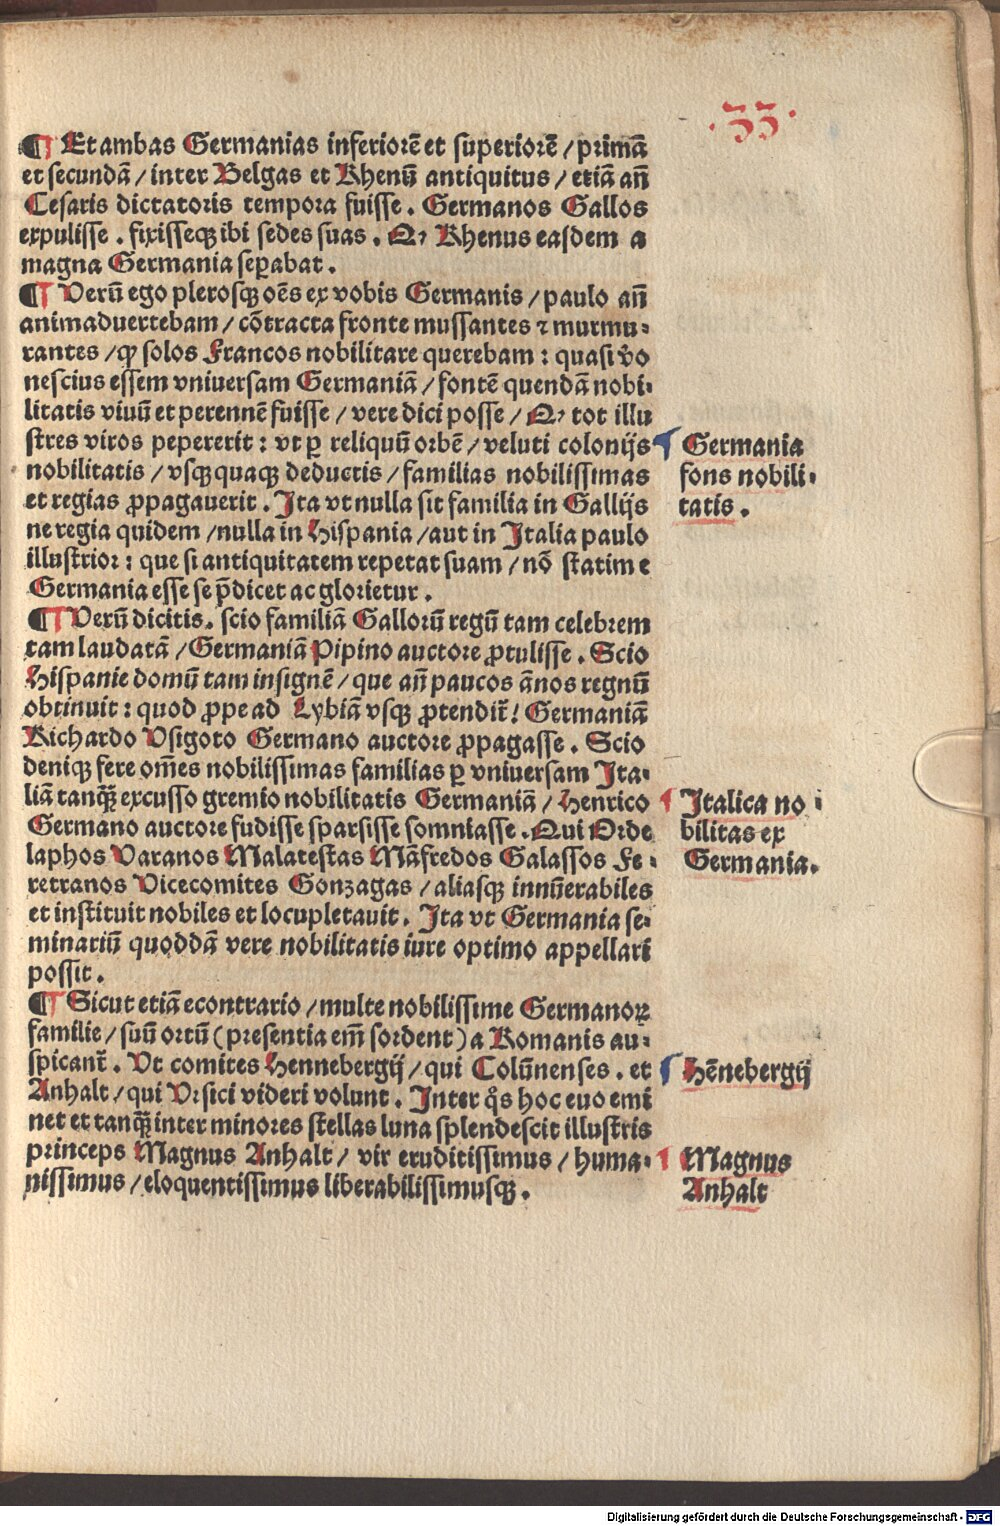 33
¶ Et ambas Germanias inferiorē et superiorē / primā
et secundā / inter Belgas et Rhenū antiquitus / etiā añ
Cesaris dictatoris tempora fuisse . Germanos Gallos
expulisse . fixisseqꝫ ibi sedes suas . Qꝛ Rhenus easdem a
magna Germania seꝑabat .
¶ Verū ego plerosqꝫ oēs ex vobis Germanis / paulo añ
animaduertebam / cōtracta fronte mussantes ⁊ murmu⸗
rantes / ꝙ solos Francos nobilitare querebam : quasi v̄o
nescius essem vniuersam Germaniā / fontē quendā nobi⸗
litatis viuū et perennē fuisse / vere dici posse / Qꝛ tot illu
stres viros pepererit : vt ꝑ reliquū orbē / veluti colonijs
nobilitatis / vsqꝫ quaqꝫ deductis / familias nobilissimas
et regias ꝓpagauerit . Ita vt nulla sit familia in Gallijs
ne regia quidem / nulla in Hispania / aut in Italia paulo
illustrior : que si antiquitatem repetat suam / nō statim e
Germania esse se p̄dicet ac glorietur .
Germania
fons nobili⸗
tatis .
¶ Verū dicitis . scio familiā Gallorū regū tam celebrem
tam laudatā / Germaniā Pipino auctore ꝓtulisse . Scio
Hispanie domū tam insignē / que añ paucos ānos regnū
obtinuit : quod ꝓpe ad Lybiā vsqꝫ ꝓtendit᷑ / Germaniā
Richardo Vsigoto Germano auctore ꝓpagasse . Scio
deniqꝫ fere om̄es nobilissimas familias ꝑ vniuersam Ita⸗
liā tanqꝫ̄ excusso gremio nobilitatis Germaniā / Henrico
Germano auctore fudisse sparsisse somniasse . Qui Orde
laphos Varanos Malatestas Māfredos Galassos Fe⸗
retranos Vicecomites Gonzagas / aliasqꝫ innūerabiles
et instituit nobiles et locupletauit . Ita vt Germania se⸗
minariū quoddā vere nobilitatis iure optimo appellari
possit .
Italica no⸗
bilitas ex
Germania .
¶ Sicut etiā econtrario / multe nobilissime Germanoꝝ
familie / suū ortū ( presentia em̄ sordent ) a Romanis au⸗
spicant᷑ . Vt comites Hennebergij / qui Colūnenses . et
Anhalt / qui Vrsici videri volunt . Inter q̊s hoc euo emi
net et tanqꝫ̄ inter minores stellas luna splendescit illustris
princeps Magnus Anhalt / vir eruditissimus / huma⸗
nissimus / eloquentissimus liberabilissimusqꝫ .
Hēnebergij
Magnus
Anhalt
Digitalisierung gefördert durch die Deutsche Forschungsgemeinschaft - DFG